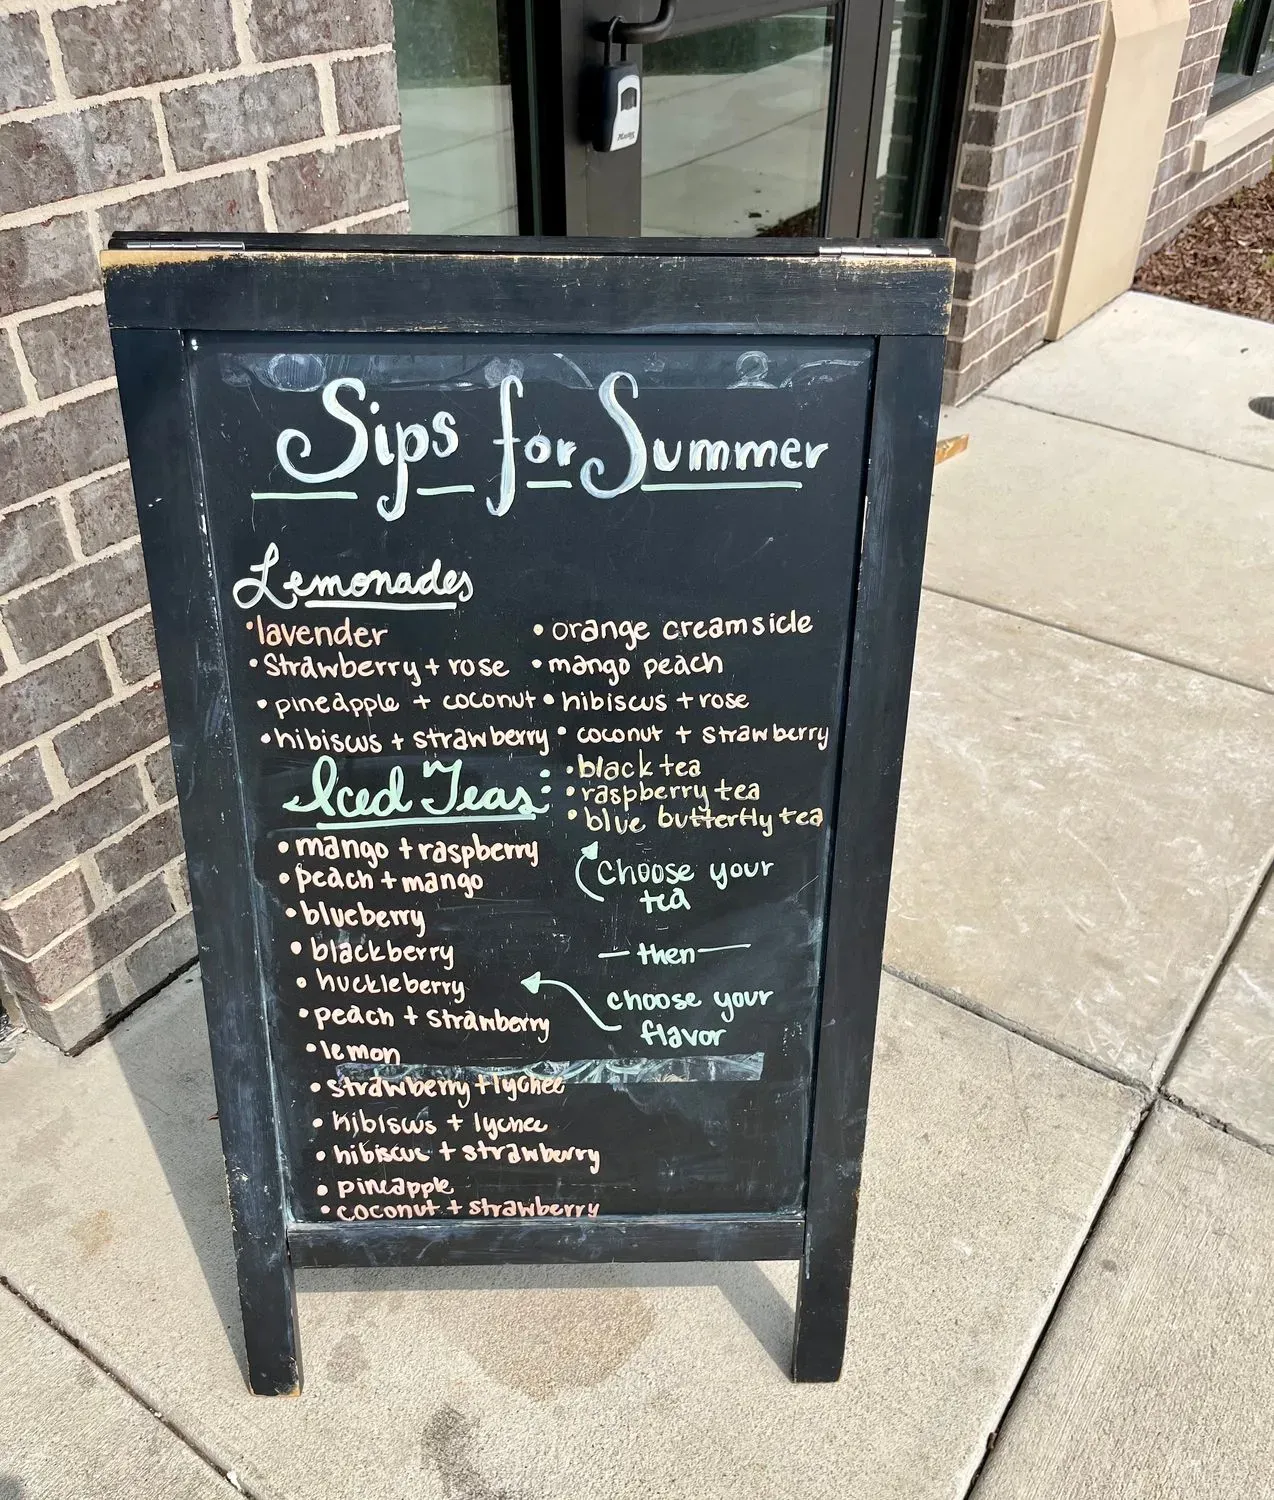 Sips for Summer
Lemonades
•lavender
•Strawberry + rose
•pineapple + coconut
•hibiscus + strawberry
•orange creamsicle
•mango peach
•hibiscus + rose
•coconut + strawberry
Iced Teas:
•black tea
•raspberry tea
•blue butterfly tea
choose your
tea
— then —
choose your
flavor
•mango + raspberry
•peach + mango
•blueberry
•blackberry
•huckleberry
•peach + strawberry
•lemon
•strawberry + lychee
•hibiscus + lychee
•hibiscus + strawberry
•pineapple
•coconut + strawberry
Master